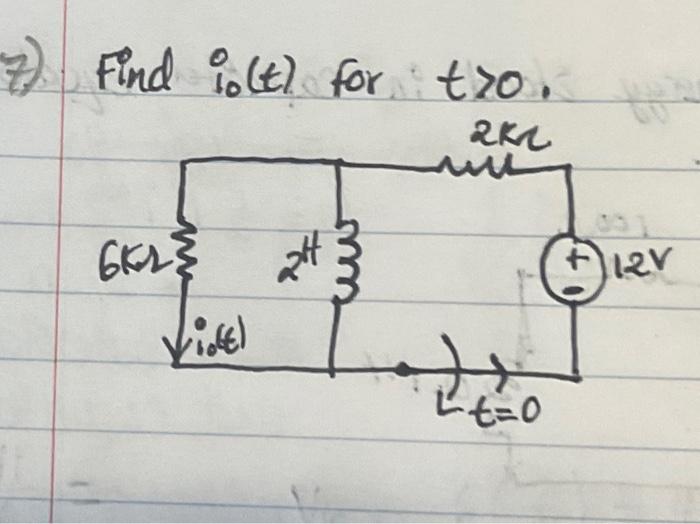 7) Find i₀(t) for t>0.
2KΩ
6KΩ
2H
+
12V
-
i₀(t)
t=0